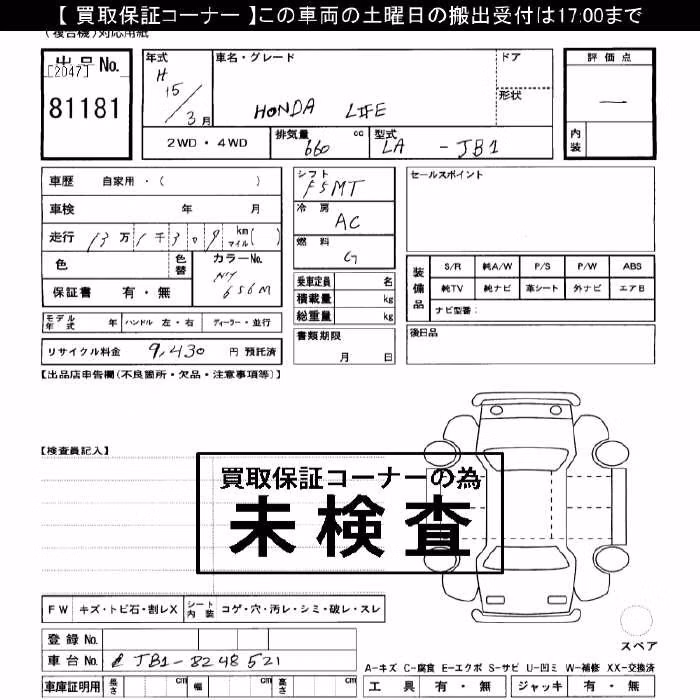 【 買取保証コーナー 】この車両の土曜日の搬出受付は17:00まで
(複合機)対応用紙
出品 No.
[2047]
81181
年式
H 15 / 3 月
車名・グレード
HONDA LIFE
ドア
形状
評価点
—
内装
2WD・4WD
排気量 660 cc
型式 LA - JB1
車歴 自家用・( )
車検 年 月
走行 13万1千309 km マイル( )
色 色替 カラーNo.
656M
保証書 有・無
モデル年式 年 ハンドル 左・右 ディーラー・並行
リサイクル料金 9,430 円 預託済
シフト F5MT
冷房 AC
燃料 G
乗車定員 名
積載量 kg
総重量 kg
書類期限
月 日
セールスポイント
装備品
S/R 純A/W P/S P/W ABS
純TV 純ナビ 革シート 外ナビ エアB
ナビ型番：
後日品
【出品店申告欄(不良箇所・欠品・注意事項等)】
【検査員記入】
買取保証コーナーの為
未検査
FW キズ・トビ石・割レX シート内装 コゲ・穴・汚レ・シミ・破レ・スレ
登録 No.
車台 No. JB1-8248521
車庫証明用 長さ cm 幅 cm 高さ cm
スペア
A-キズ C-腐食 E-エクボ S-サビ U-凹ミ W-補修 XX-交換済
工具 有・無 ジャッキ 有・無